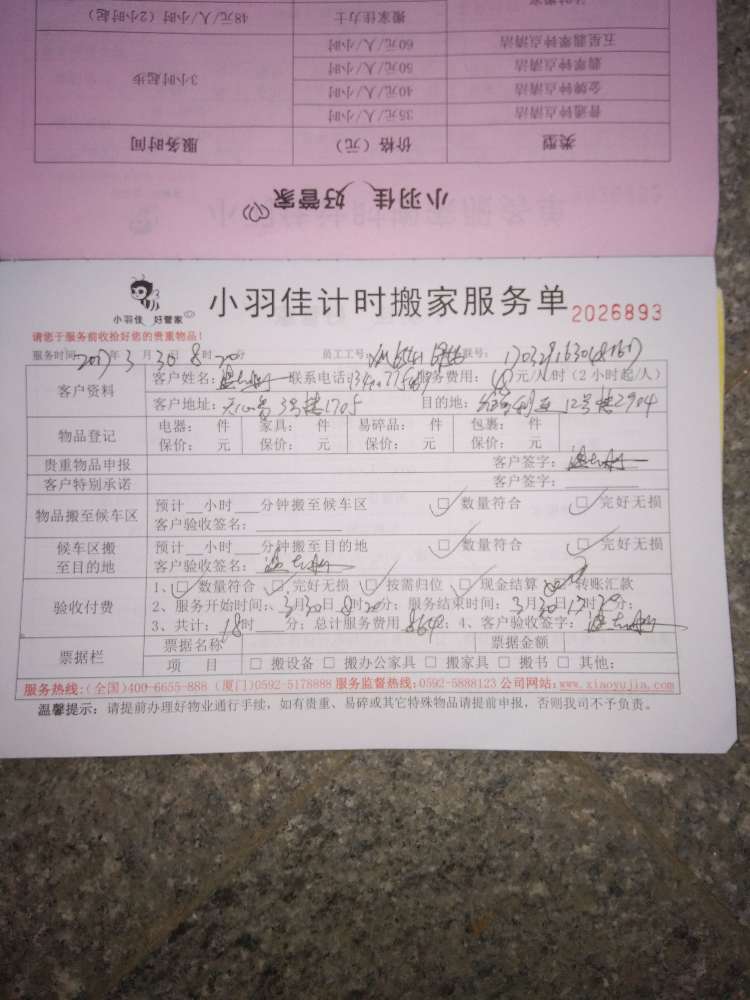 搬家佳力士 48元/人/小时(2小时起)
五星翡翠钟点清洁 60元/人/小时
翡翠钟点清洁 50元/人/小时
金牌钟点清洁 40元/人/小时 3小时起步
普通钟点清洁 35元/人/小时
类型 价格(元) 服务时间
小羽佳 好管家
小羽佳 好管家
小羽佳计时搬家服务单 2026893
请您于服务前收拾好您的贵重物品!
服务时间 2017年3月30日8时20分 员工工号: 联号:
客户资料 客户姓名: 联系电话: 服务费用: 48元/人/时(2小时起/人)
客户地址: 3号楼1705 目的地: 12号楼2904
物品登记 电器: 件 家具: 件 易碎品: 件 包裹: 件
保价: 元 保价: 元 保价: 元 保价: 元
贵重物品申报 客户签字:
客户特别承诺 客户签字:
物品搬至候车区 预计__小时___分钟搬至候车区 □数量符合 □完好无损
客户验收签名:
候车区搬至目的地 预计__小时___分钟搬至目的地 □数量符合 □完好无损
客户验收签名:
验收付费 1、□数量符合 □完好无损 □按需归位 □现金结算 □转账汇款
2、服务开始时间:3月30日8时20分;服务结束时间:3月30日17时20分;
3、共计:18时___分;总计服务费用 864元;4、客户验收签字:
票据栏 票据名称 票据金额
项 目 □搬设备 □搬办公家具 □搬家具 □搬书 □其他:
服务热线:(全国)400-6655-888 (厦门)0592-5178888 服务监督热线:0592-5888123 公司网站:www.xiaoyujia.com
温馨提示:请提前办理好物业通行手续,如有贵重、易碎或其它特殊物品请提前申报,否则我司不予负责。